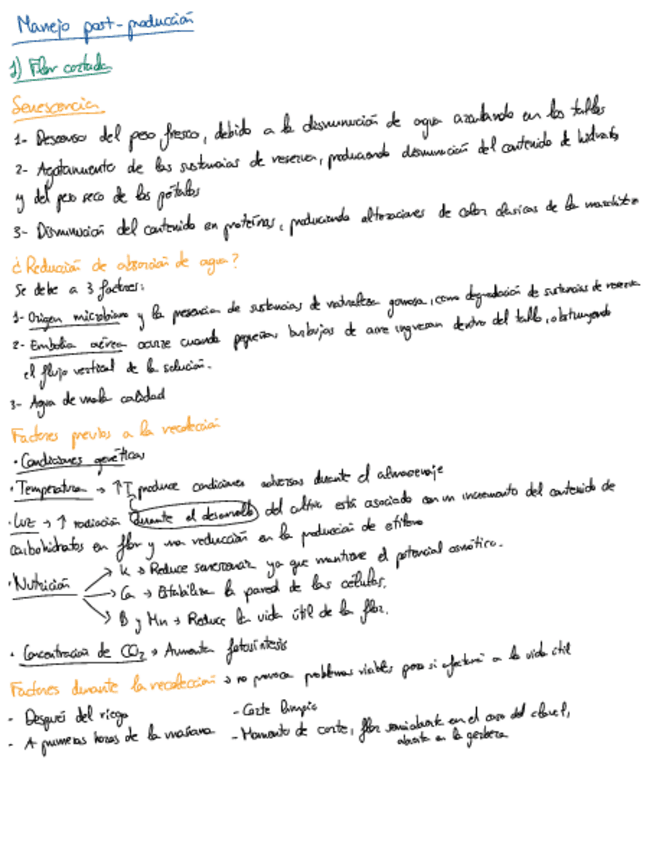 Manejo post-producción
1) Flor cortada
Senescencia
1- Descenso del peso fresco, debido a la disminución de agua acumulando en los tallos
2- Agotamiento de las sustancias de reserva, produciendo disminución del contenido de hidratos
y del peso seco de los pétalos
3- Disminución del contenido en proteínas, produciendo alteraciones de color clasicas de la marchitez
¿Reducción de absorción de agua?
Se debe a 3 factores:
1- Origen microbiano y la presencia de sustancias de naturaleza gomosa, como degradación de sustancias de reserva
2- Embolia aérea ocurre cuando pequeñas burbujas de aire ingresan dentro del tallo, obstruyendo
el flujo vertical de la solución.
3- Agua de mala calidad
Factores previos a la recolección
· Condiciones genéticas
· Temperatura → ↑T produce condiciones adversas durante el almacenaje
· Luz → ↑ radiación durante el desarrollo del cultivo está asociado con un incremento del contenido de
carbohidratos en flor y una reducción en la producción de etileno
· Nutrición → K → Reduce senescencia ya que mantiene el potencial osmótico.
→ Ca → Estabiliza la pared de las células.
→ B y Mn → Reduce la vida útil de la flor.
· Concentración de CO2 → Aumenta fotosíntesis
Factores durante la recolección → no provoca problemas visibles pero si afectará a la vida útil
- Después del riego - Corte limpio
- A primeras horas de la mañana - Momento de corte, flor semiabierta en el caso del clavel,
abierta en la gerbera